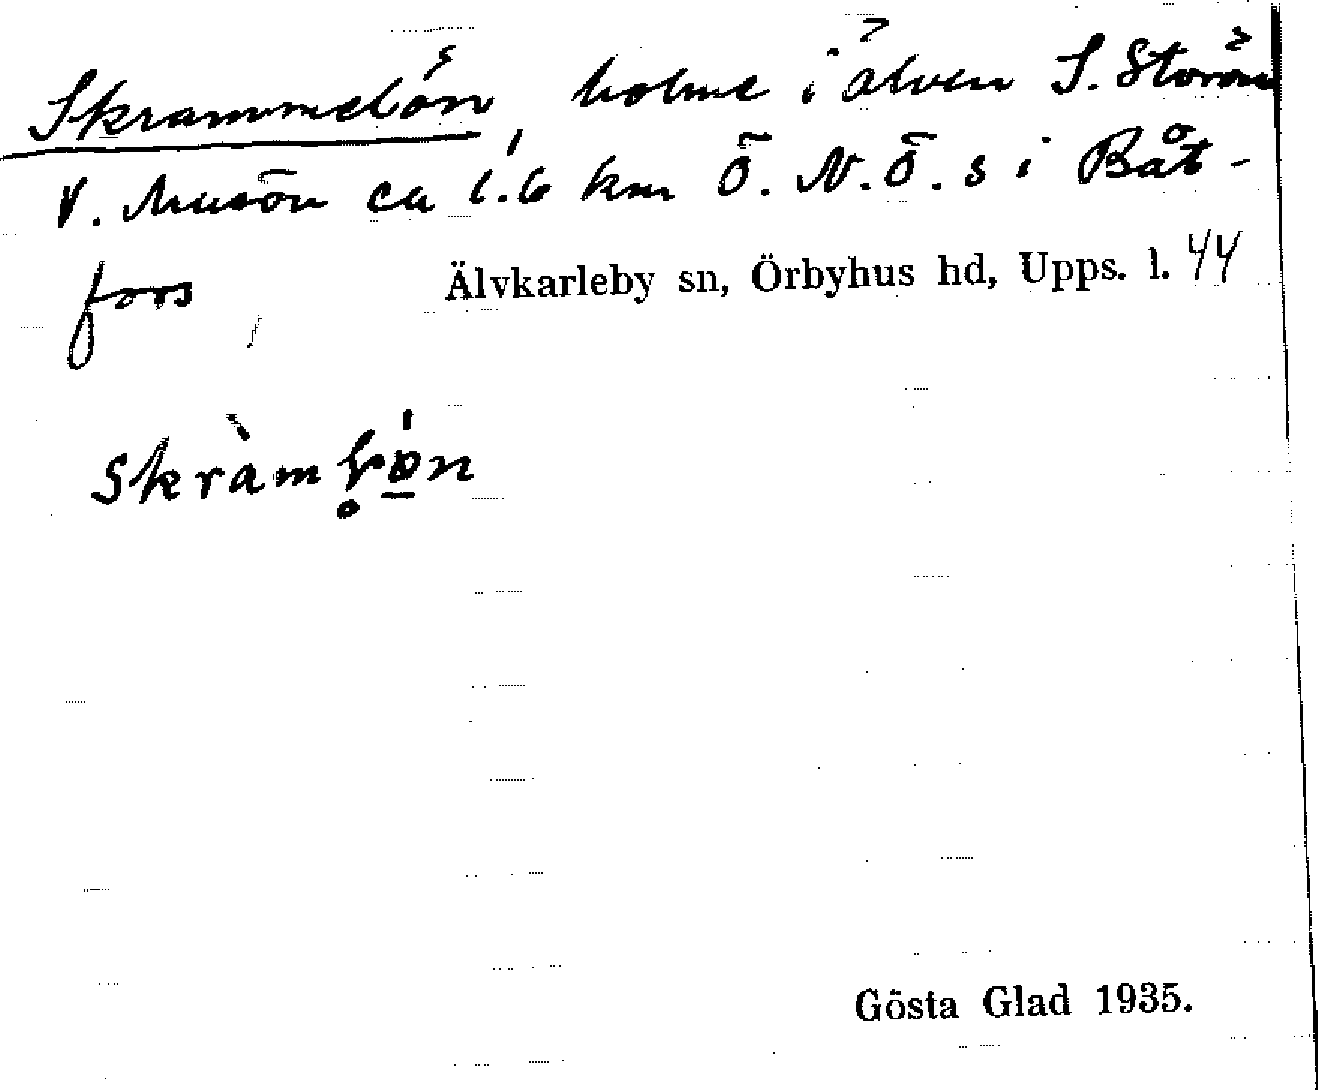 Skrammelön, holme i älven S. Storön
V. Musön ca 1.6 km Ö.N.Ö. s i Båt-
fors,
Älvkarleby sn, Örbyhus hd, Upps. l. 44
Gösta Glad 1935.